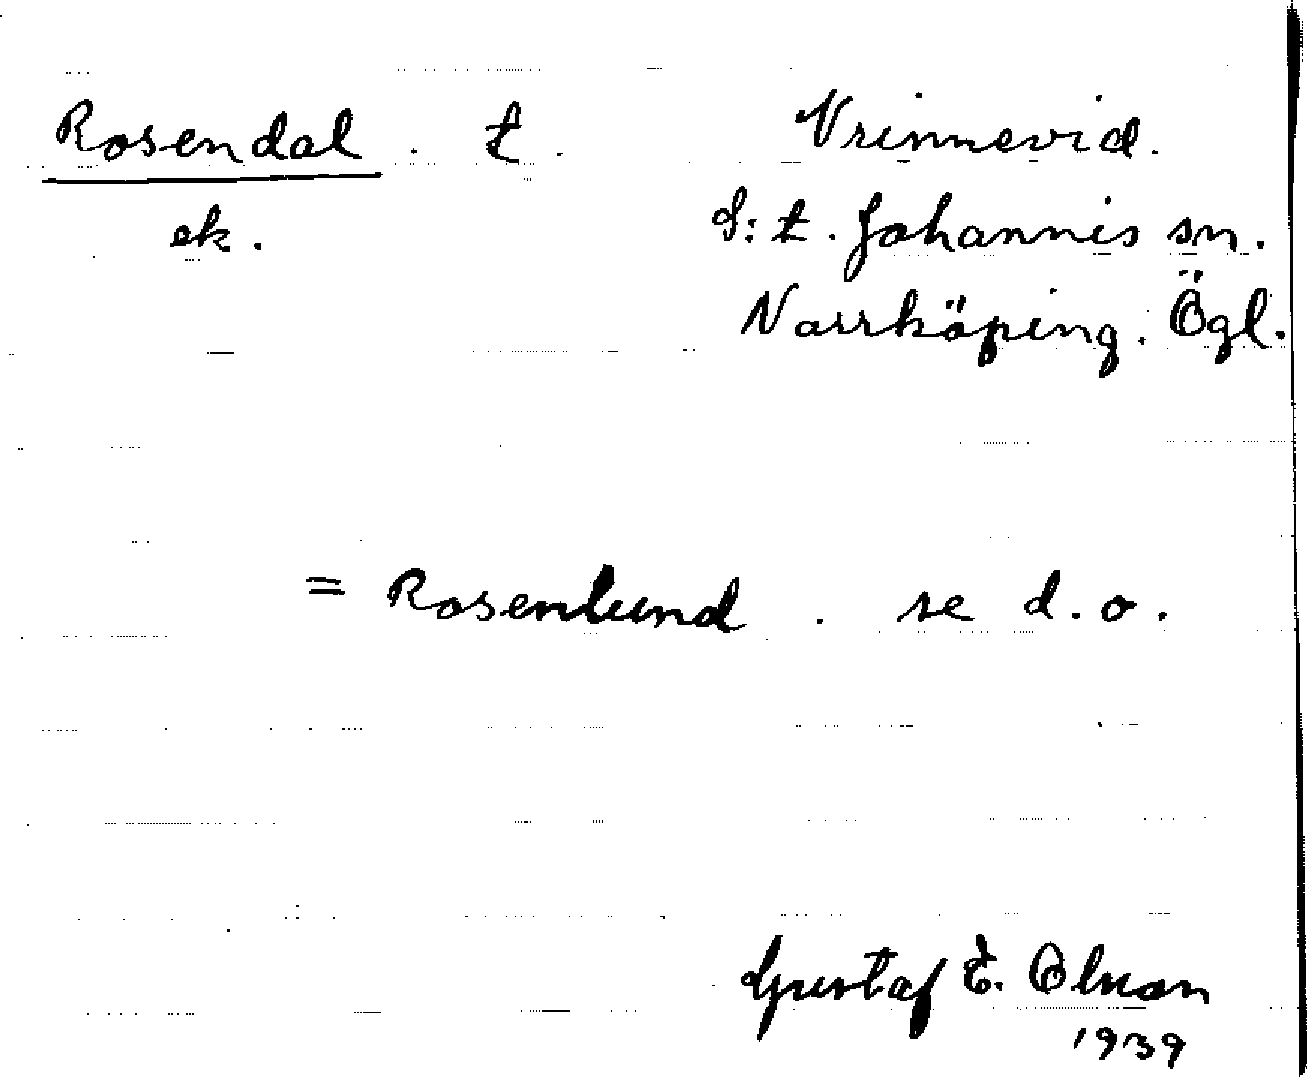 Rosendal. t. Vrinnevid.
ek. S:t. Johannis sn.
Norrköping. Ögl.
= Rosenlund. se d.o.
Gustaf E. Olson
1939